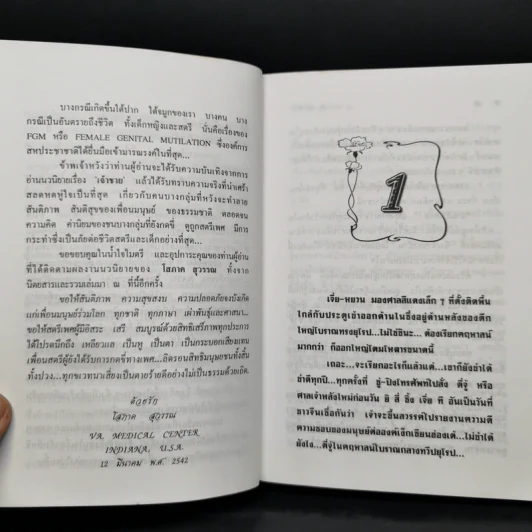 บางกรณีเกิดขึ้นใต้ปาก ใต้จมูกของเรา บางคน บาง
กรณีเป็นอันตรายถึงชีวิต ทั้งเด็กหญิงและสตรี นั่นคือเรื่องของ
FGM หรือ FEMALE GENITAL MUTILATION ซึ่งองค์การ
สหประชาชาติได้ยื่นมือเข้ามารณรงค์ในที่สุด...
ข้าพเจ้าหวังว่าท่านผู้อ่านจะได้รับความบันเทิงจากการ
อ่านนวนิยายเรื่อง 'เจ้าชาย' แล้วได้รับทราบความจริงที่น่าเศร้า
สลดหดหู่ใจเป็นที่สุด เกี่ยวกับคนบางกลุ่มที่หวังจะทำลาย
สันติภาพ สันติสุขของเพื่อนมนุษย์ ของธรรมชาติ ตลอดจน
ความคิด ค่านิยมของชนบางกลุ่มที่ยังกดขี่ ดูถูกสตรีเพศ มีการ
กระทำซึ่งเป็นภัยต่อชีวิตสตรีและเด็กอย่างที่สุด...
ขอขอบคุณในน้ำใจไมตรี และอุปการะคุณของท่านผู้อ่าน
ที่ได้ติดตามผลงานนวนิยายของ โสภาค สุวรรณ ทั้งจาก
นิตยสารและรวมเล่มมา ณ ที่นี้อีกครั้ง
ขอให้สันติภาพ ความสุขสงบ ความปลอดภัยจงบังเกิด
แก่เพื่อนมนุษย์ร่วมโลก ทุกชาติ ทุกภาษา เผ่าพันธุ์และศาสนา...
ขอให้สตรีเพศผู้มีอิสระ เสรี สมบูรณ์ด้วยสิทธิเสรีภาพทุกประการ
ได้โปรดนึกถึง เหลียวแล เป็นปาก เป็นตา เป็นกระบอกเสียงแทน
เพื่อนสตรีผู้ยังได้รับการกดขี่ทางเพศ...ลิดรอนสิทธิมนุษยชนทั้งสิ้น
ทั้งปวง...ทุกขเวทนาเสี่ยงเป็นตายร้ายดีอย่างไม่เป็นธรรมด้วยเถิด.
ด้วยรัก
โสภาค สุวรรณ
VA. MEDICAL CENTER
INDIANA, U.S.A.
12 มีนาคม พ.ศ. 2542
1
เจี่ย-หยวน มองศาลสีแดงเล็ก ๆ ที่ตั้งติดพื้น
ใกล้กับประตูเข้าออกด้านในซึ่งอยู่ด้านหลังของตึก
ใหญ่โบราณทรงยุโรป...ไม่ใช่ซินะ... ต้องเรียกคฤหาสน์
มากกว่า ก็ออกใหญ่โตมโหฬารขนาดนี้
เถอะ...จะเรียกอะไรก็แล้วแต่...เขาก็ยังขำได้
ขำดีทุกปี...ทุกครั้งที่ ยู่-ปิงโทรศัพท์ไปสั่ง ตี่จู้ หรือ
ศาลเจ้าหลังใหม่ก่อนวัน ยี สี่ ซิ้ง เจี่ย ที อันเป็นวันที่
ชาวจีนเชื่อกันว่า เจ้าจะขึ้นสวรรค์ไปรายงานความดี
ความชอบของมนุษย์ต่อองค์เง็กเซียนฮ่องเต้...ไม่ขำได้
ยังไง...ตี่จู้ในคฤหาสน์โบราณกลางทวีปยุโรป...